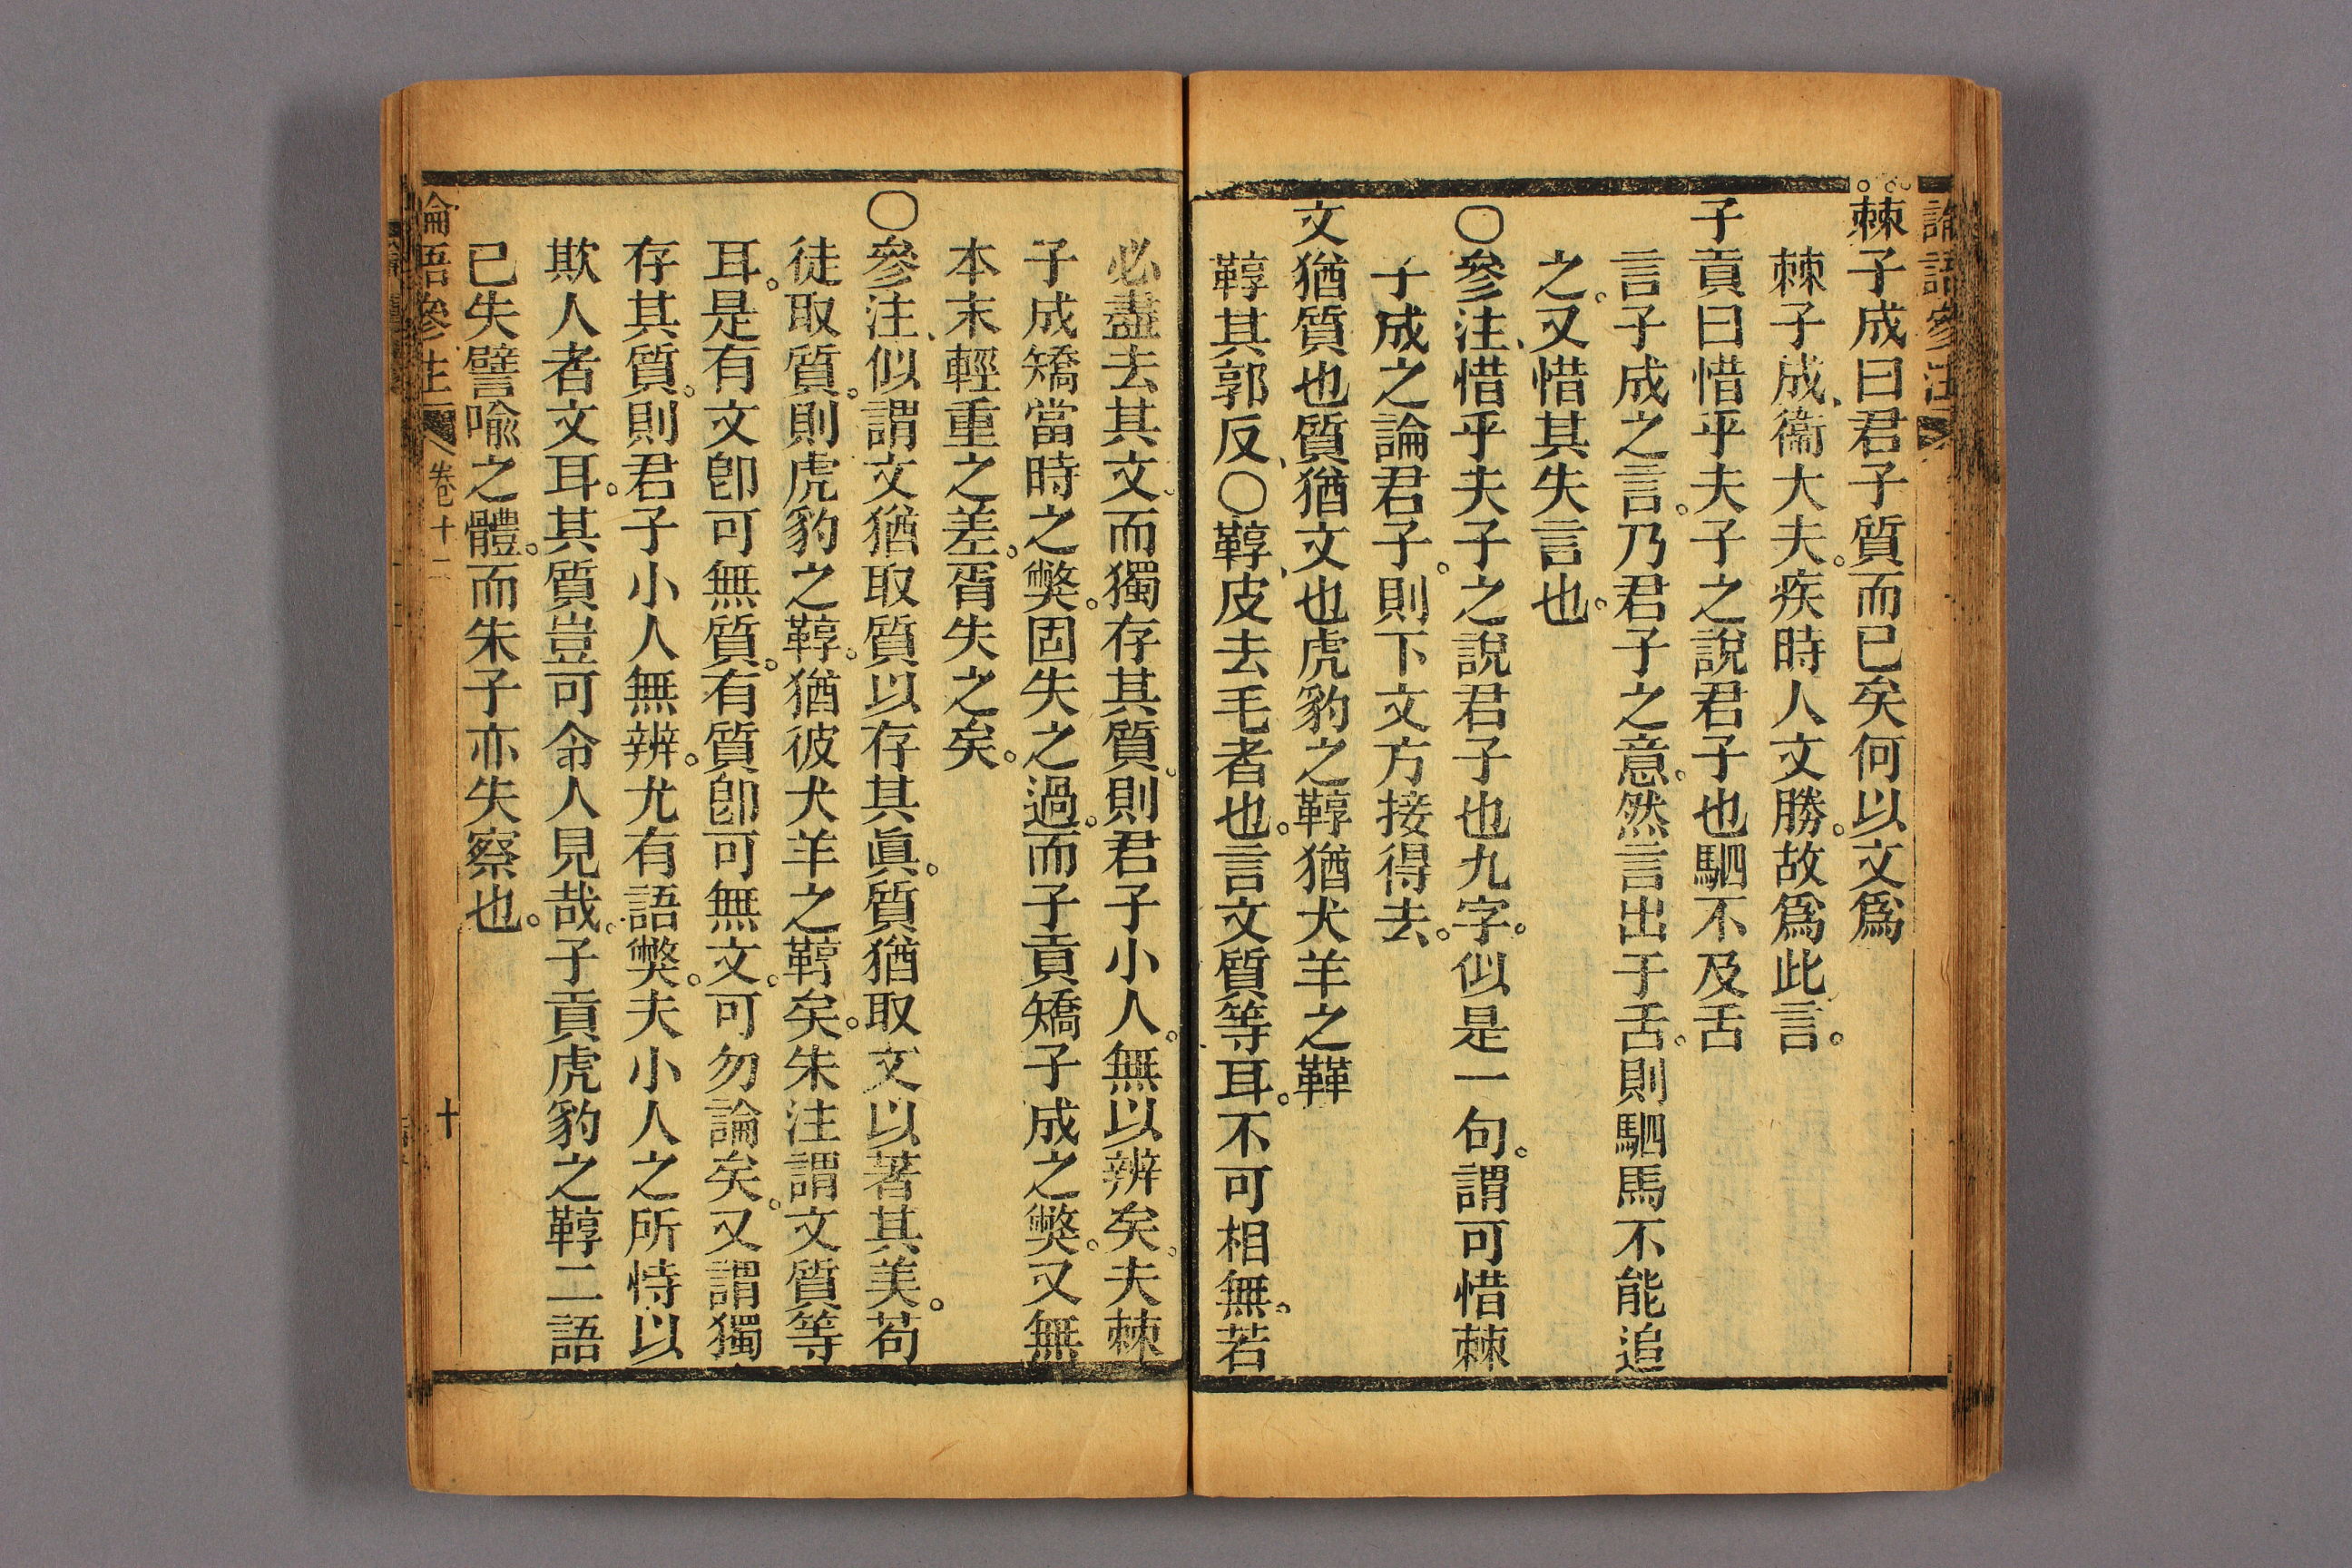 論語參注
棘子成曰君子質而已矣何以文爲
棘子成、衞大夫。疾時人文勝。故爲此言。
子貢曰惜乎夫子之說君子也駟不及舌
言子成之言。乃君子之意。然言出于舌。則駟馬不能追
之。又惜其失言也。
〇參注、惜乎夫子之說君子也九字。似是一句。謂可惜棘
子成之論君子。則下文方接得去。
文猶質也質猶文也虎豹之鞟猶犬羊之鞟
鞟其郭反、〇鞟、皮去毛者也。言文質等耳。不可相無。若
必盡去其文、而獨存其質。則君子小人。無以辨矣。夫棘
子成矯當時之獘。固失之過。而子貢矯子成之獘。又無
本末輕重之差。胥失之矣。
〇參注、似謂文猶取質以存其眞。質猶取文以著其美。苟
徒取質。則虎豹之鞟。猶彼犬羊之鞟矣。朱注謂文質等
耳。是有文卽可無質。有質卽可無文。可勿論矣。又謂獨
存其質。則君子小人無辨。尤有語獘。夫小人之所恃以
欺人者文耳。其質豈可令人見哉。子貢虎豹之鞟二語
已失譬喩之體。而朱子亦失察也。
論語參注 卷十二 十